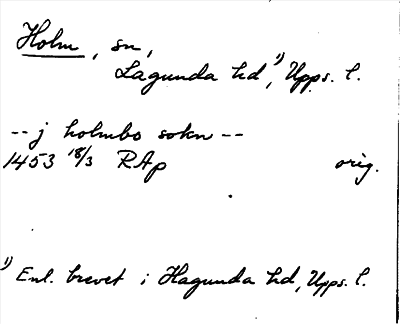 Holm, sn,
Lagunda hd,¹⁾ Upps. l.
-- j holmbo sokn --
1453 18/3 RAp orig.
¹⁾ Enl. brevet i Hagunda hd, Upps. l.